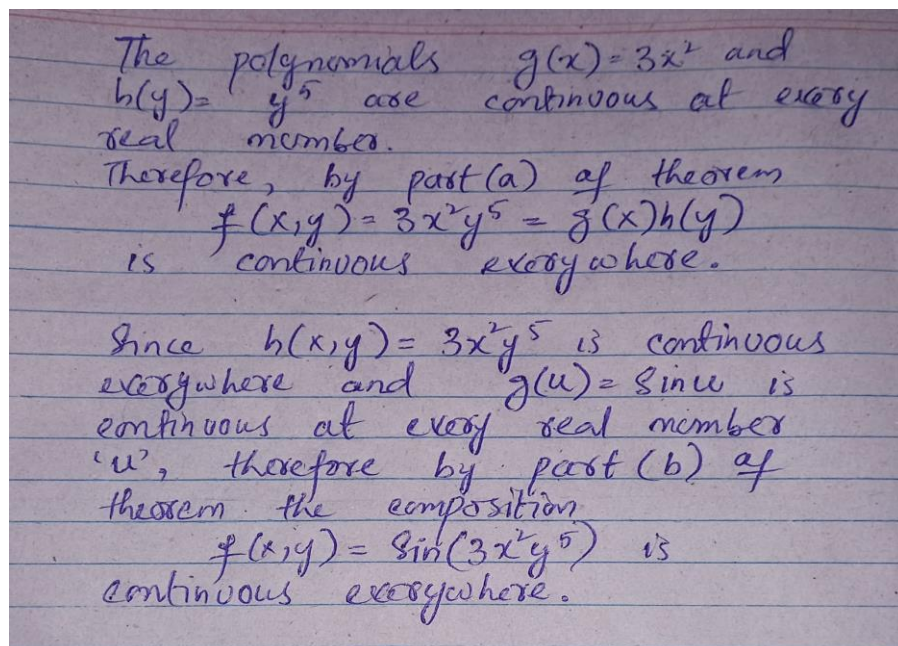 The polynomials g(x) = 3x² and
h(y) = y⁵ are continuous at every
real number.
Therefore, by part (a) of theorem
f(x,y) = 3x²y⁵ = g(x)h(y)
is continuous everywhere.
Since h(x,y) = 3x²y⁵ is continuous
everywhere and g(u) = Sin u is
continuous at every real number
'u', therefore by part (b) of
theorem the composition
f(x,y) = Sin(3x²y⁵) is
continuous everywhere.